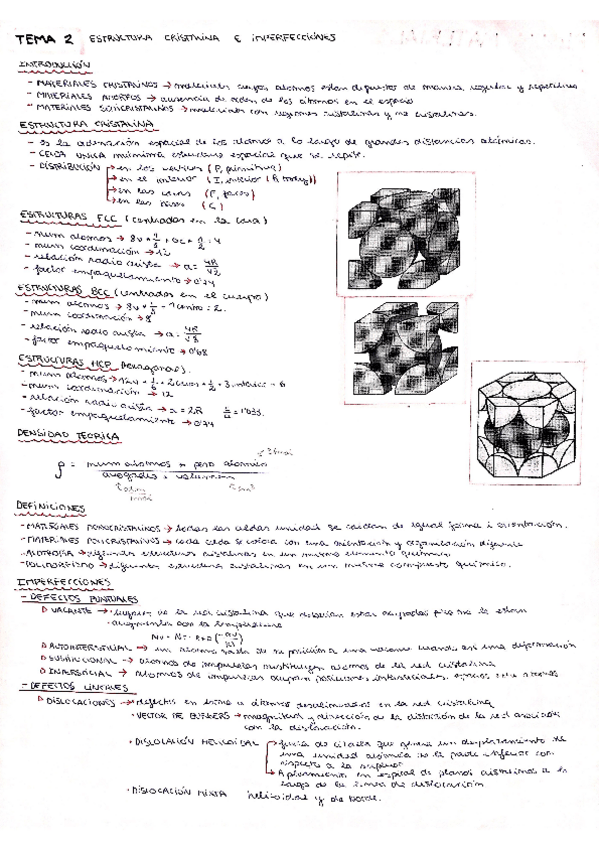 TEMA 2 ESTRUCTURA CRISTALINA E IMPERFECCIONES
INTRODUCCIÓN
- MATERIALES CRISTALINOS → materiales cuyos átomos estan dispuestos de manera regular y repetitiva
- MATERIALES AMORFOS → ausencia de orden de los átomos en el espacio
- MATERIALES SEMICRISTALINOS → materiales con regiones cristalinas y no cristalinas.
ESTRUCTURA CRISTALINA
- Es la ordenación espacial de los átomos a lo largo de grandes distancias atómicas.
- CELDA UNICA mínima estructura espacial que se repite.
- DISTRIBUCIÓN → en los vértices (P, primitiva)
→ en el interior (I, interior (B, body))
→ en las caras (F, faces)
→ en las bases (C)
ESTRUCTURAS FCC (centradas en la cara)
- num átomos →
- num coordinación → 12
- relación radio arista → a = 4R/√2
- factor empaquetamiento → 0'74
ESTRUCTURAS BCC (centradas en el cuerpo)
- num átomos →
- num coordinación → 8
- relación radio arista → a =
- factor empaquetamiento → 0'68
ESTRUCTURAS HCP (hexagonal).
- num átomos →
- num coordinación → 12
- relación radio arista → a = 2R
- factor empaquetamiento → 0'74
DENSIDAD TEORICA
ρ = num átomos x peso atómico
avogadro x volumen
DEFINICIONES
- MATERIALES MONOCRISTALINOS → todas las celdas unidad se colocan de igual forma i orientación.
- MATERIALES POLICRISTALINOS → cada celda se coloca con una orientación y organización diferente
- ALOTROPIA → diferentes estructuras cristalinas en un mismo elemento químico
- POLIMORFISMO → diferentes estructura cristalinas en un mismo compuesto químico.
IMPERFECCIONES
- DEFECTOS PUNTUALES
VACANTE → lugares de la red cristalina que deberían estar ocupados pero no lo estan
- aumenta con la temperatura
AUTOINTERSTICIAL → un átomo salta de su posición a una vacante creando así una deformación
SUSTITUCIONAL → átomos de impurezas sustituyen átomos de la red cristalina
INTERSTICIAL → átomos de impurezas ocupan posiciones intersticiales, espacios entre átomos
- DEFECTOS LINEALES
DISLOCACIONES → defectos en torno a átomos desalineados en la red cristalina
· VECTOR DE BURGERS → magnitud y dirección de la distorsión de la red asociada
con la dislocación.
· DISLOCACIÓN HELICOIDAL → fuerza de cizalla que genera un desplazamiento de
una unidad atómica de la parte inferior con
respecto a la superior
→ Apilamiento en espiral de planos cristalinos a lo
largo de la línea de dislocación
· DISLOCACIÓN MIXTA helicoidal y de borde.